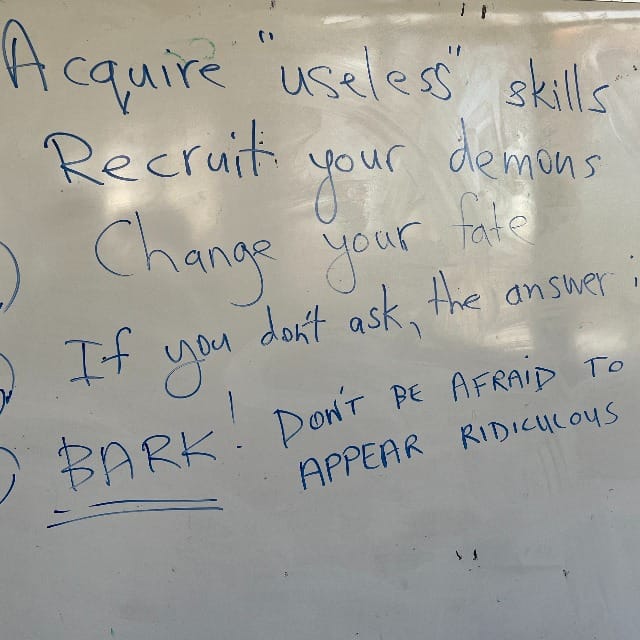 Acquire "useless" skills
Recruit your demons
Change your fate
If you don't ask, the answer i
BARK! DON'T BE AFRAID TO
APPEAR RIDICULOUS